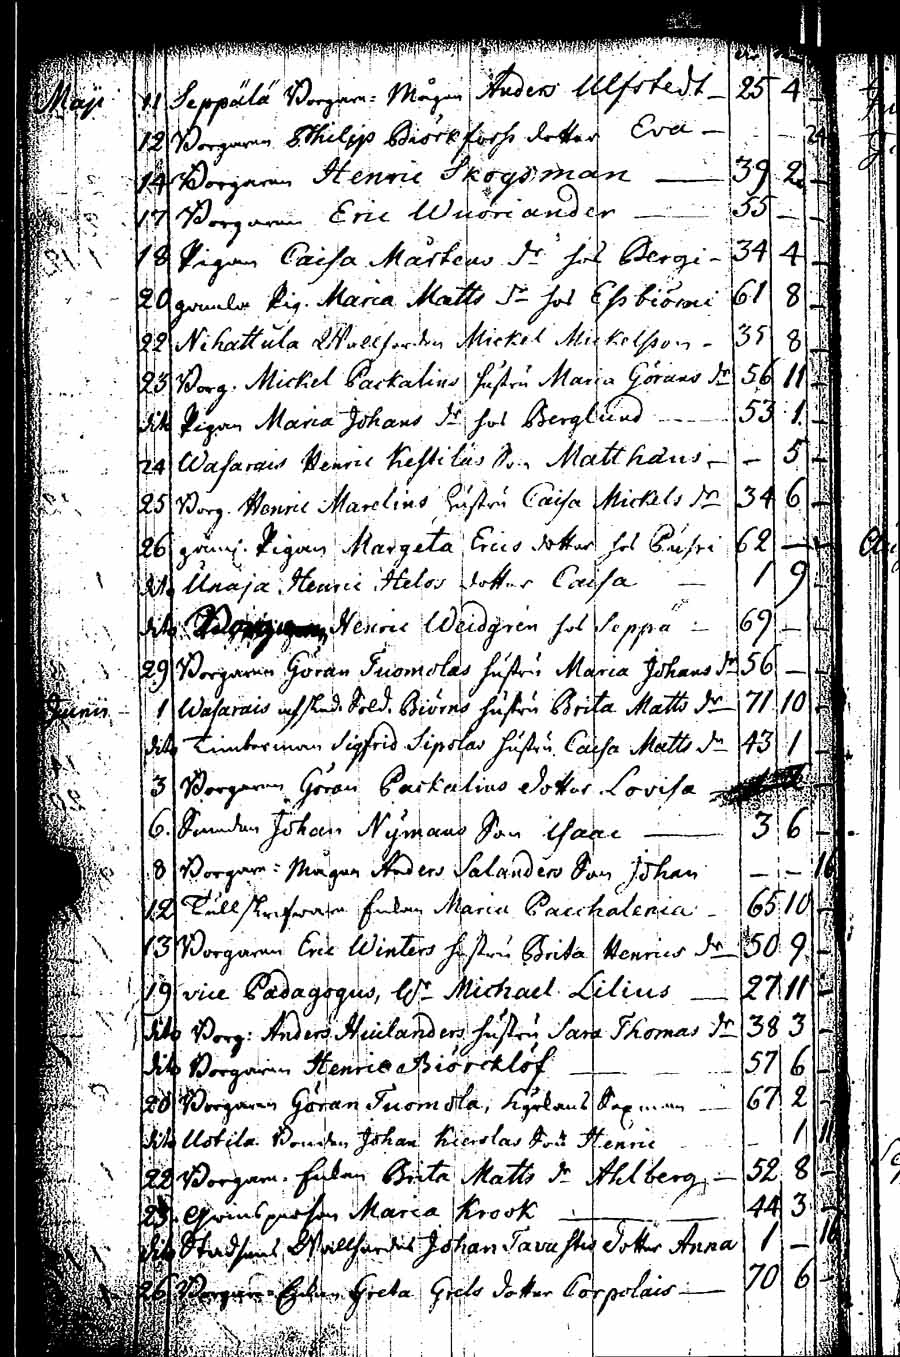 Maji 11 Seppälä Borgare: Mågen Anders Ulfstedt – 25 4 –
12 Borgaren Philip Biörkforss dotter Eva – – – 24
14 Borgaren Henric Skogsman — 39 2 –
17 Borgaren Eric Wuoriander — 55 – –
18 Pigan Caisa Mårtens dr hos Bergi – 34 4 –
20 gamla Pig. Maria Matts dr hos Essbiörni 61 8 –
22 Nihattula Wallfarden Mickel Mickelsson – 35 8 –
23 Borg. Mickel Packalius hustru Maria Görans dr 56 11 –
dito Pigan Maria Johans dr hos Berglund — 53 1 –
24 Wasarais Henric Kestilas Son Matthäus – – 5 –
25 Borg. Henric Marelius hustru Caisa Mickels dr 34 6 –
26 Pigan Margeta Erics dotter hos 62 – –
dito Unaja Henric Helos dotter Caisa – 1 9 –
dito Henric Weidgren hos Seppä – 69 – –
29 Borgaren Göran Tuomolas hustru Maria Johans dr 56 – –
Junii 1 Wasarais afsked. Sold. Biörns hustru Brita Matts dr 71 10 –
dito Timberman Sigfrid Sipolas hustru Caisa Matts dr 43 1 –
3 Borgaren Göran Packalius dotter Lovisa
6 Johan Nymans Son Isaac — 3 6 –
8 Borgare: Mågen Anders Salanders Son Johan – – 16
12 Enkan Maria Pacchalenia – 65 10 –
13 Borgaren Eric Winters hustru Brita Henrics dr 50 9 –
19 vice Pædagogus, Hr Michael Lilius — 27 11 –
dito Borg: Anders Heulanders hustru Sara Thomas dr 38 3 –
dito Borgaren Henric Biörcklöf — 57 6 –
20 Borgaren Göran Tuomola, Kyrkans Sexman — 67 2 –
dito Uotila Bonden Johan Kierolas Son Henric – 1 11
22 Borgare. Enkan Brita Matts dr Ahlberg – 52 8 –
23 Maria Krook — 44 3 –
dito Stadsens Wallfardes Johan Tavastes dotter Anna 1 – 16
26 Borgare-Enkan Greta Grels dotter Corpolais — 70 6 –